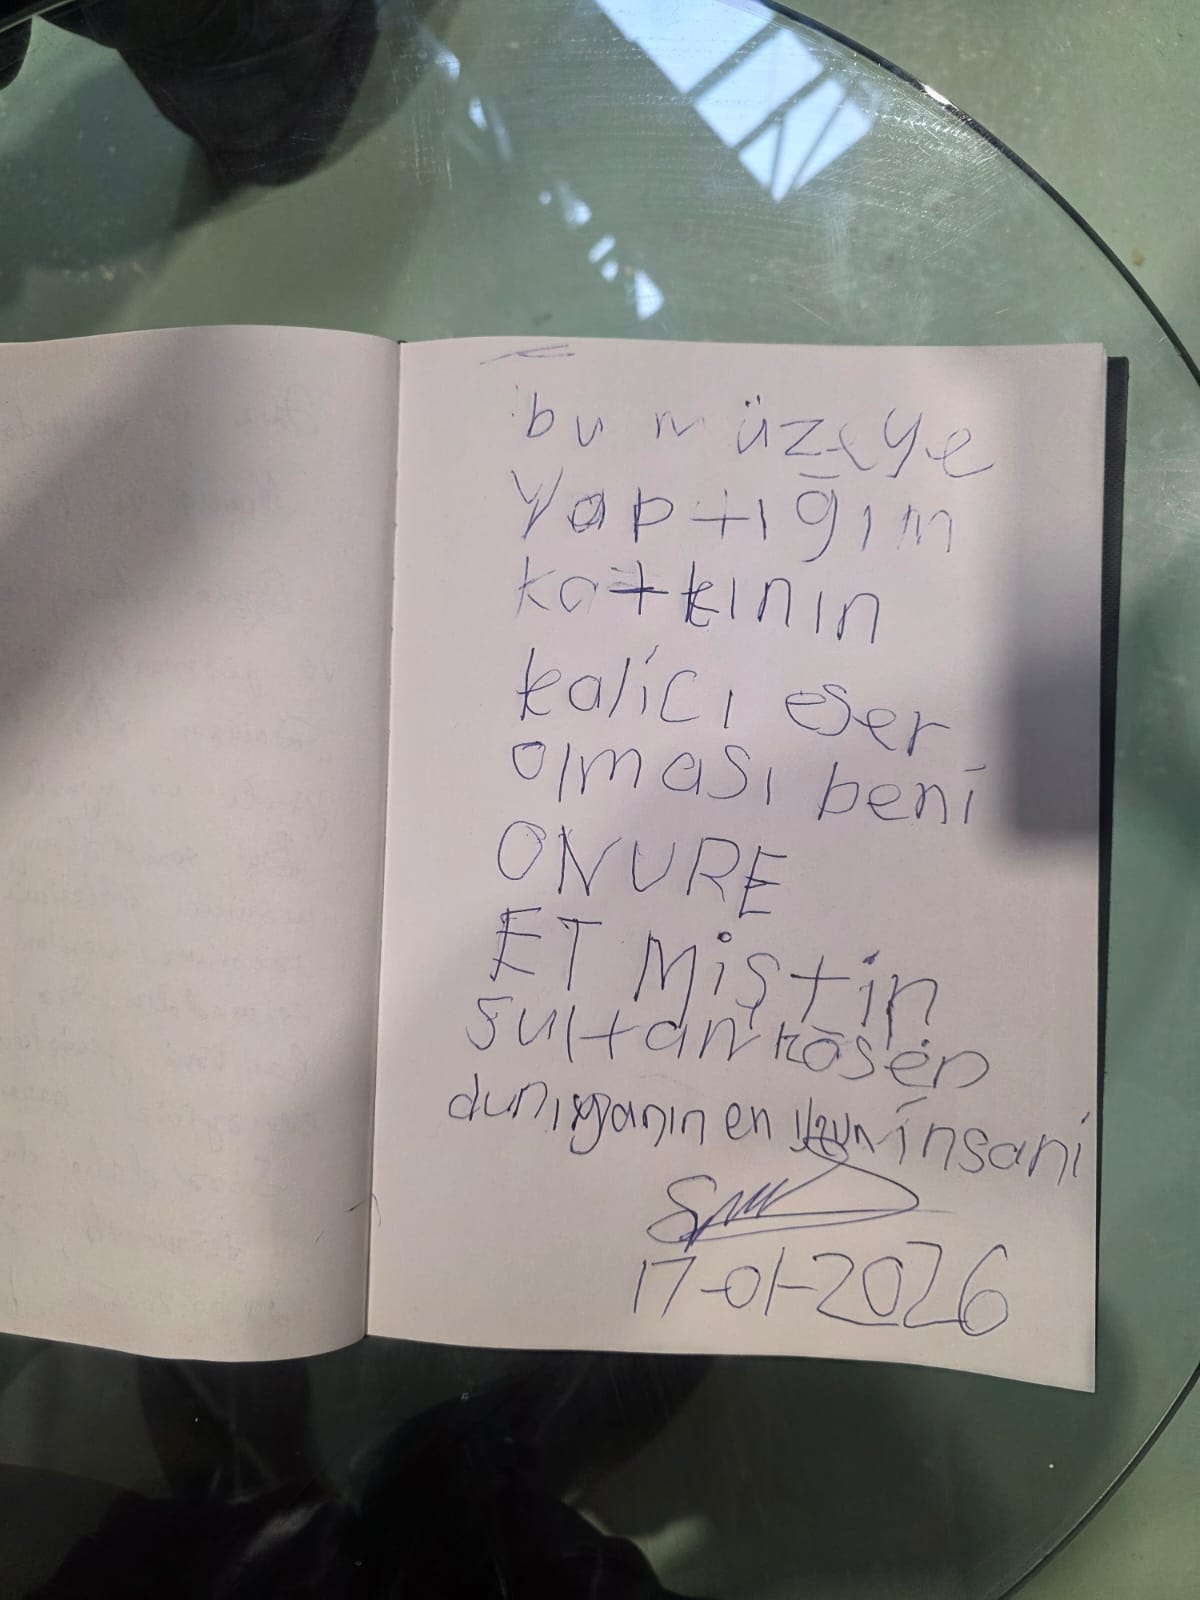 bu müzeye
yaptığım
katkının
kalici eser
olması beni
ONURE
ET MİŞtin
Sultan kösen
dunyanın en uzun insani
17-01-2026